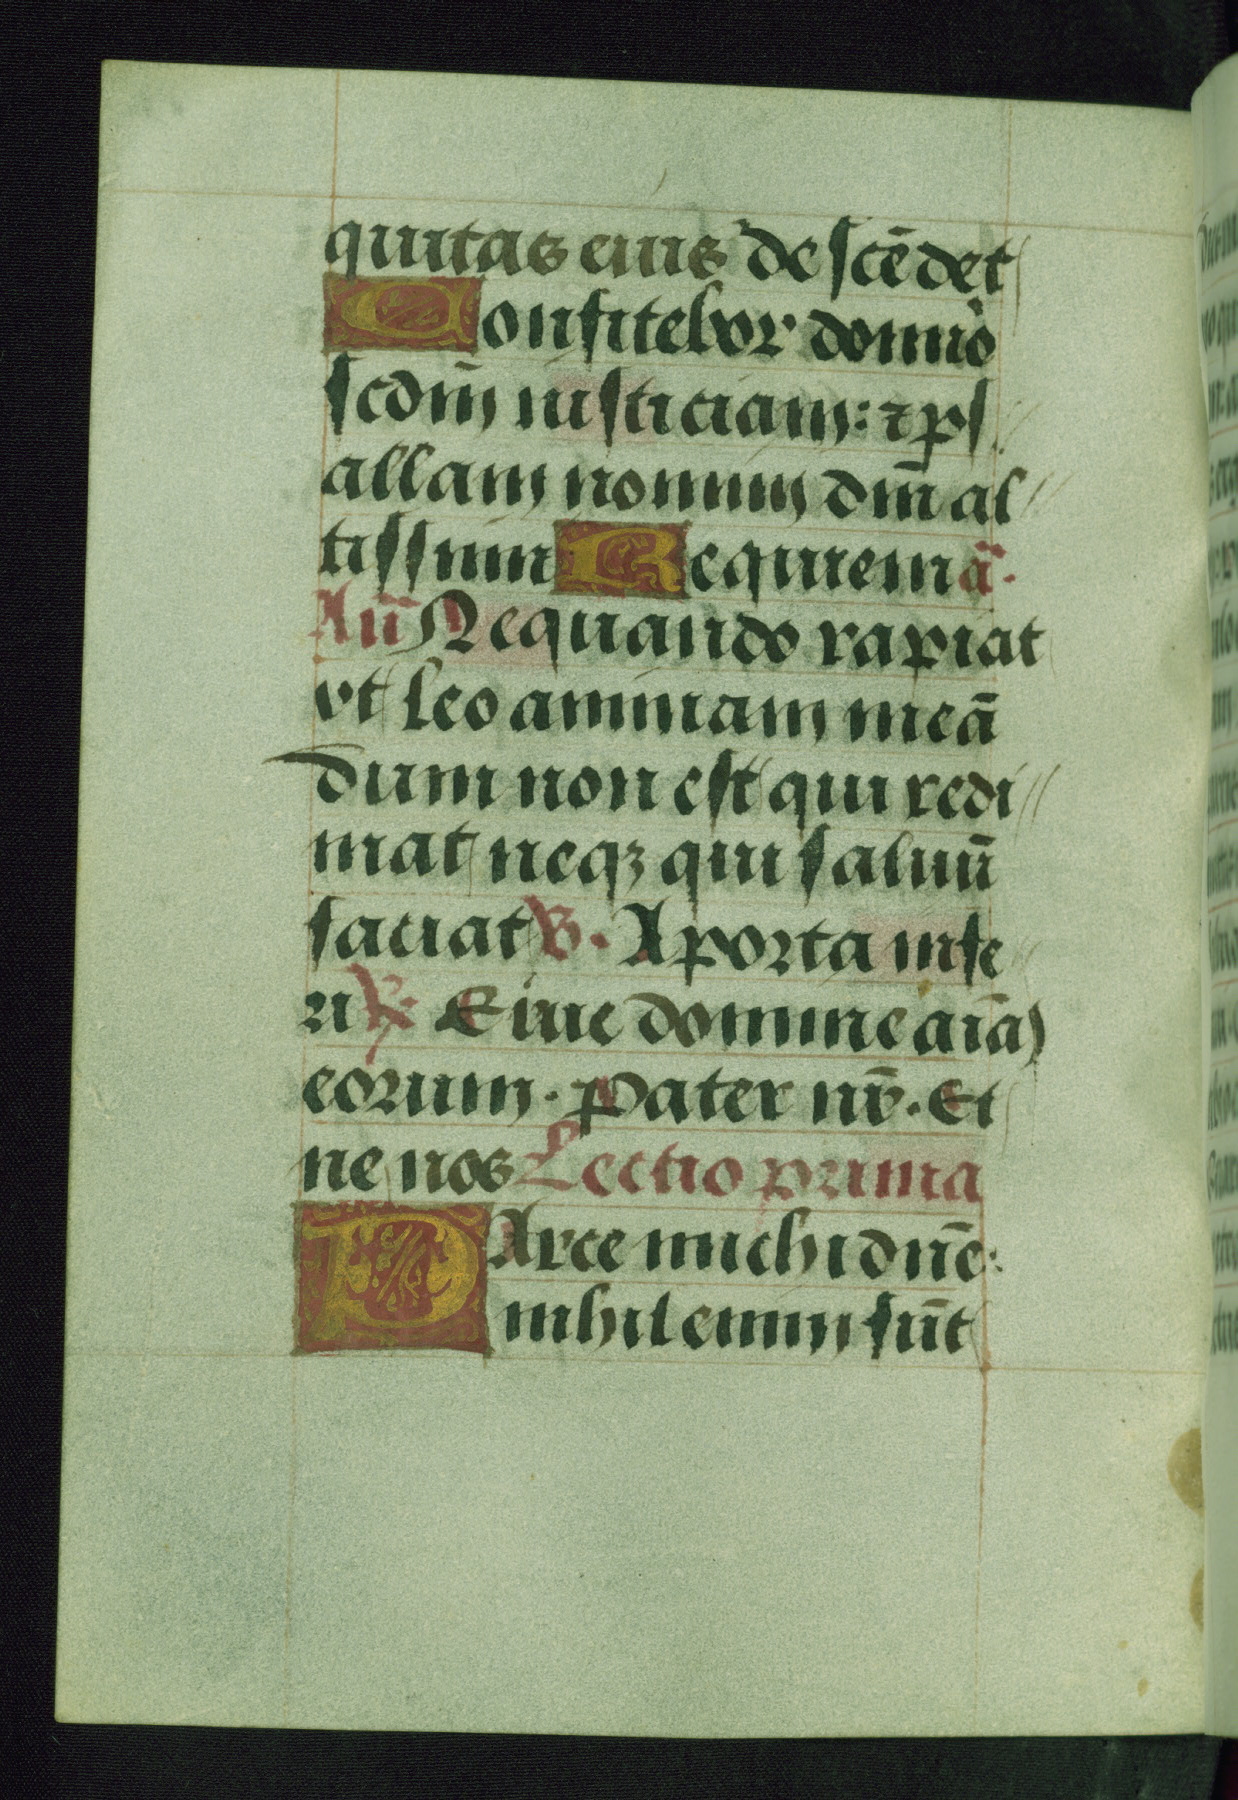 quitas eius descēdet
Confitebor domīo
scdm̄ iusticiam: ⁊ ps
allam nomini dn̄i al
tissimi Requiem ā.
An̄ Nequando rapiat
vt leo animam meā
dum non est qui redi
mat neqꝫ qui saluū
faciat ℣. A porta infe
ri ℟ Erue domine aīā
eorum. Pater nr̄. Et
ne nos Lectio prima
PArce michi dn̄e:
nihil enim sūt